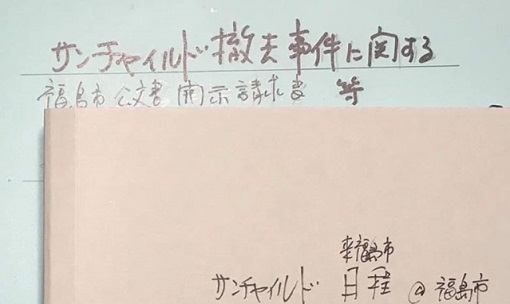 サンチャイルド撤去事件に関する
福島市公文書開示請求書 等
来福島市
サンチャイルド 日程 @福島市